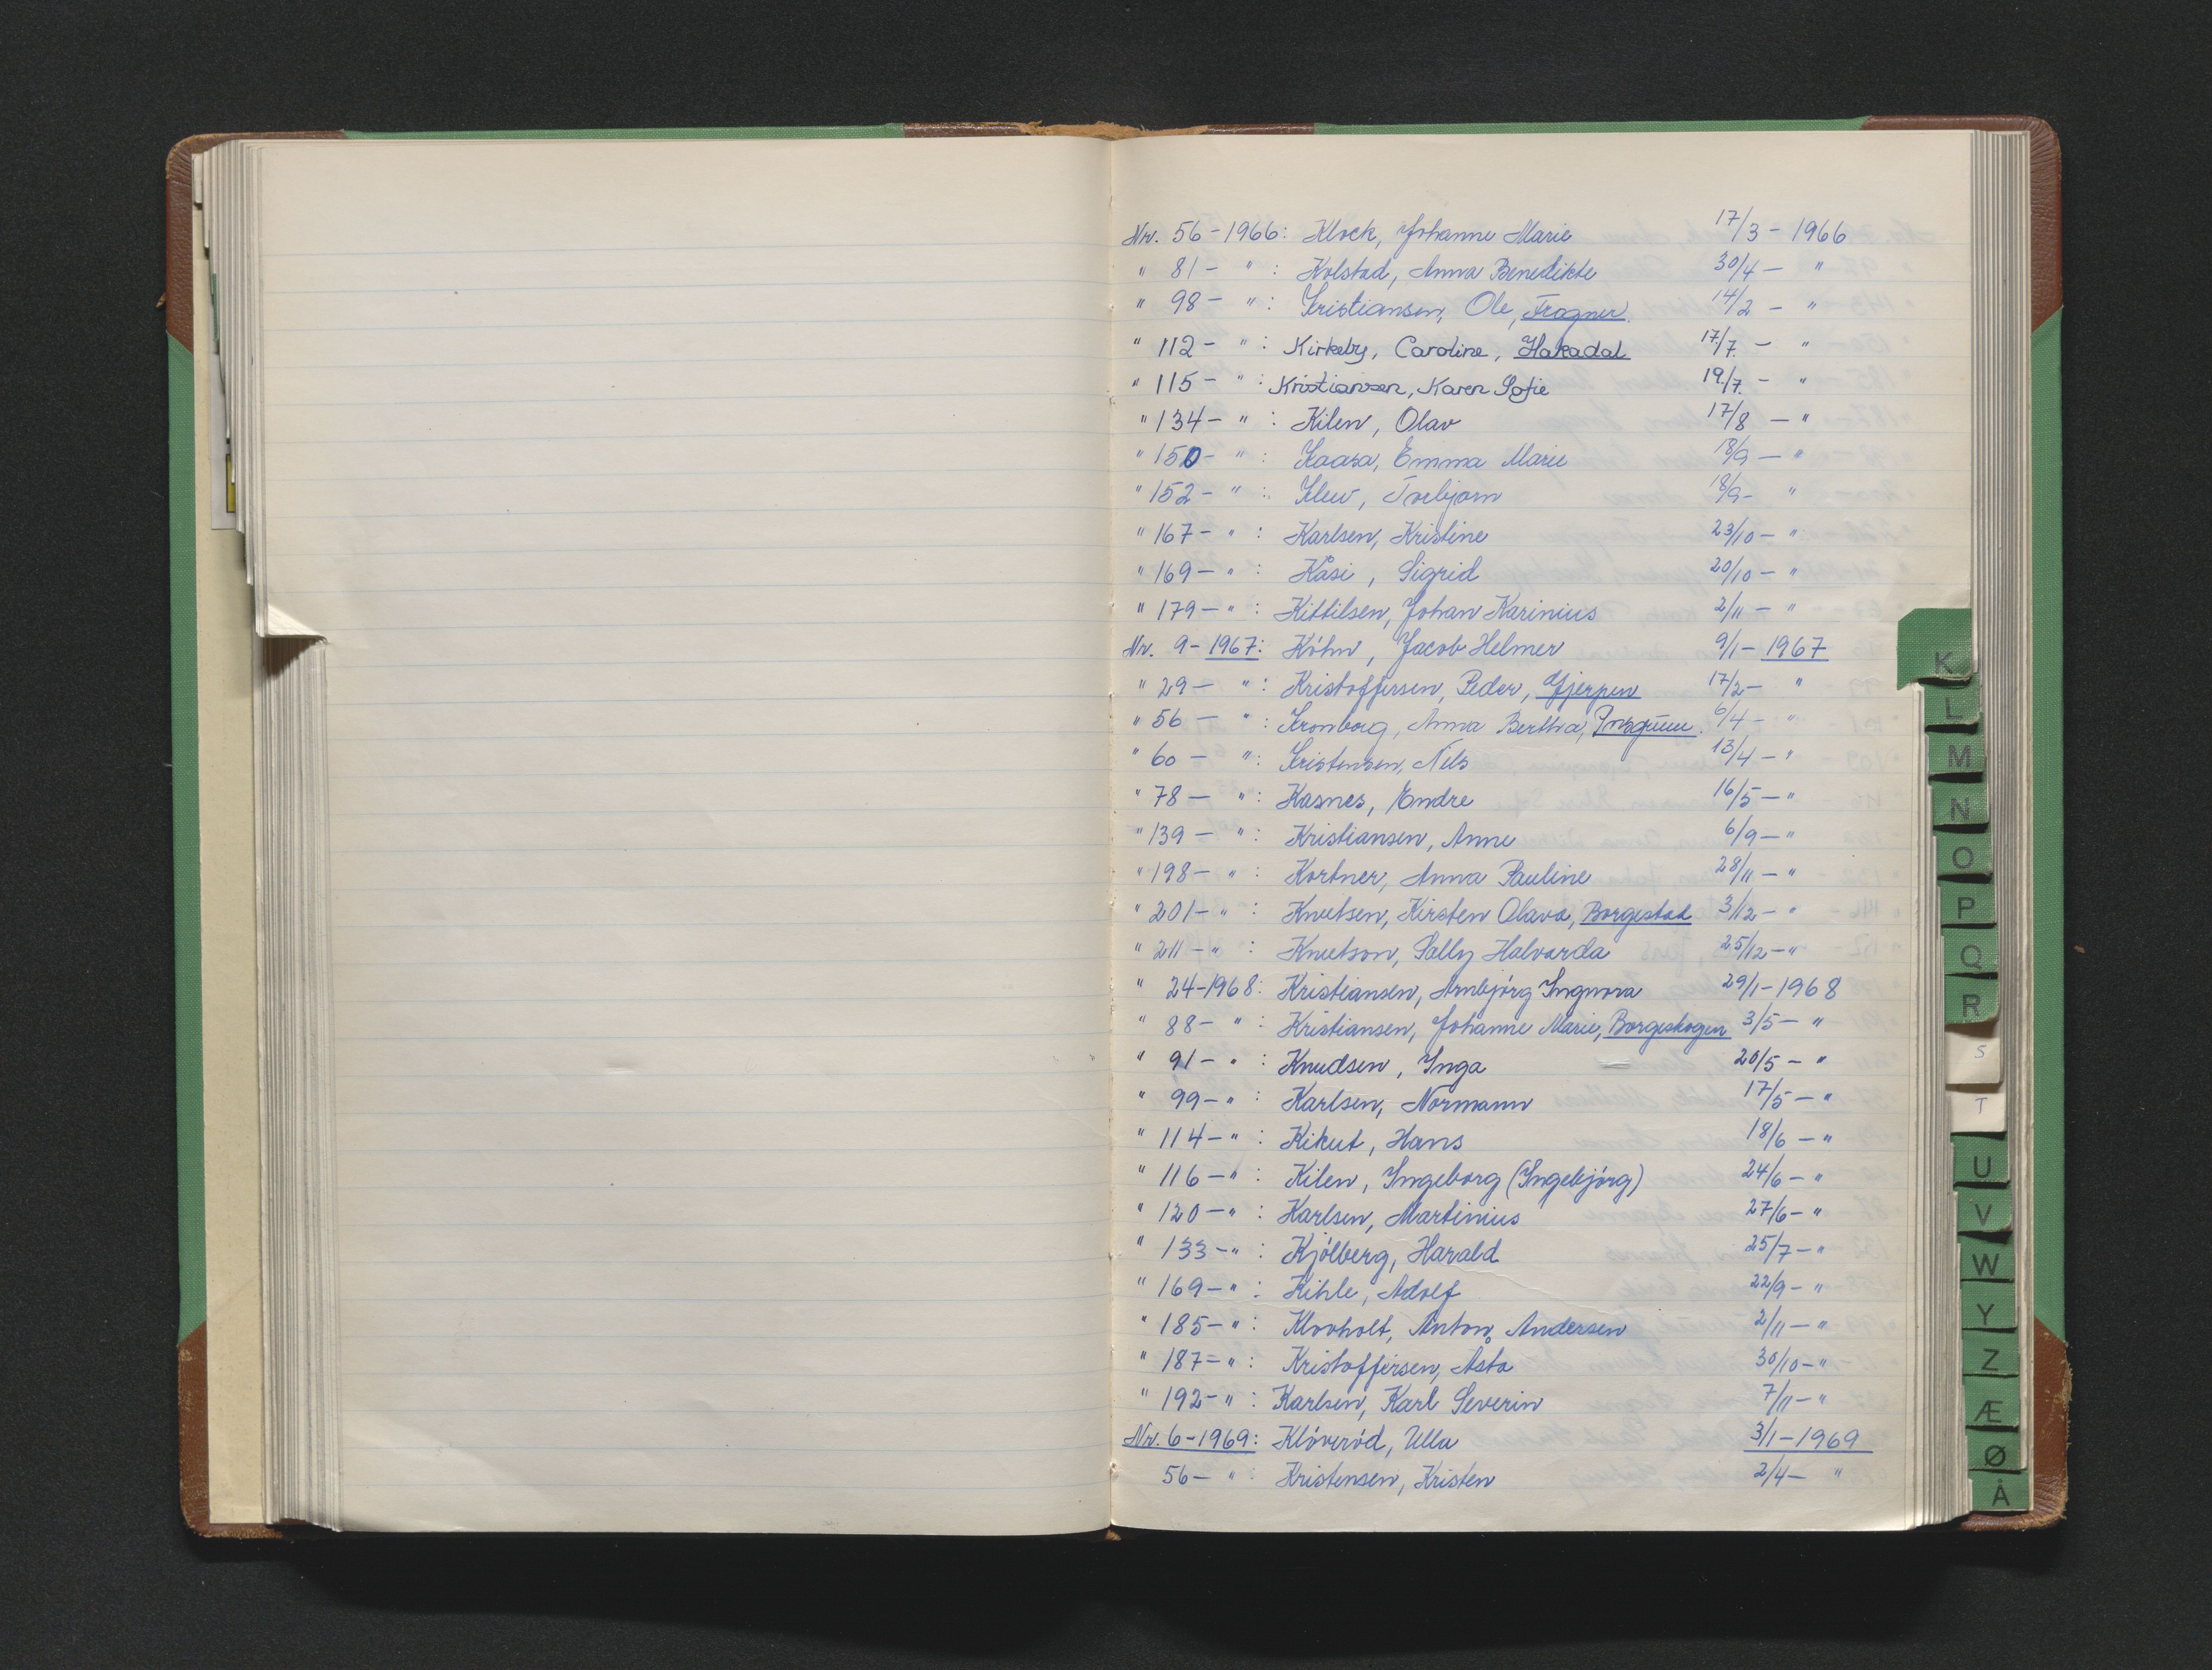 Nr. 56-1966: Klock, Johanne Marie 17/3 - 1966
" 81 - " : Kolstad, Anna Benedikte 30/4 - "
" 98 - " : Kristiansen, Ole, Frogner. 14/2 - "
" 112 - " : Kirkeby, Caroline, Hakadal 17/7. - "
" 115 - " : Kristiansen, Karen Sofie 19/7. - "
" 134 - " : Kilen, Olav 17/8 - "
" 150 - " : Kaasa, Emma Marie 18/9 - "
" 152 - " : Kleiv, Torbjørn 18/9 - "
" 167 - " : Karlsen, Kristine 23/10 - "
" 169 - " : Kåsi, Sigrid 20/10 - "
" 179 - " : Kittilsen, Johan Karinius 2/11 - "
Nr. 9 - 1967: Köhn, Jacob Helmer 9/1 - 1967
" 29 - " : Kristoffersen, Peder, Gjerpen 17/2 - "
" 56 - " : Kronborg, Anna Bertha, Porsgrunn. 6/4 - "
" 60 - " : Kristensen, Nils 13/4 - "
" 78 - " : Kasnes, Endre 16/5 - "
" 139 - " : Kristiansen, Anne 6/9 - "
" 198 - " : Kortner, Anna Pauline 28/11 - "
" 201 - " : Knutsen, Kirsten Olava, Borgestad 3/12 - "
" 211 - " : Knutson, Sally Halvarda 25/12 - "
" 24-1968: Kristiansen, Arnbjörg Ingnora 29/1 - 1968
" 88 - " : Kristiansen, Johanne Marie, Borgeskogen 3/5 - "
" 91 - " : Knudsen, Inga 20/5 - "
" 99 - " : Karlsen, Normann 17/5 - "
" 114 - " : Kikut, Hans 18/6 - "
" 116 - " : Kilen, Ingeborg (Ingebjörg) 24/6 - "
" 120 - " : Karlsen, Martinius 27/6 - "
" 133 - " : Kjölberg, Harald 25/7 - "
" 169 - " : Kihle, Adolf 22/9 - "
" 185 - " : Klovholt, Anton, Andersen 2/11 - "
" 187 - " : Kristoffersen, Asta 30/10 - "
" 192 - " : Karlsen, Karl Severin 7/11 - "
Nr. 6-1969: Klöveröd, Ulla 3/1 - 1969
56 - " : Kristensen, Kristen 2/4 - "
K
L
M
N
O
P
Q
R
S
T
U
V
W
Y
Z
Æ
Ø
Å